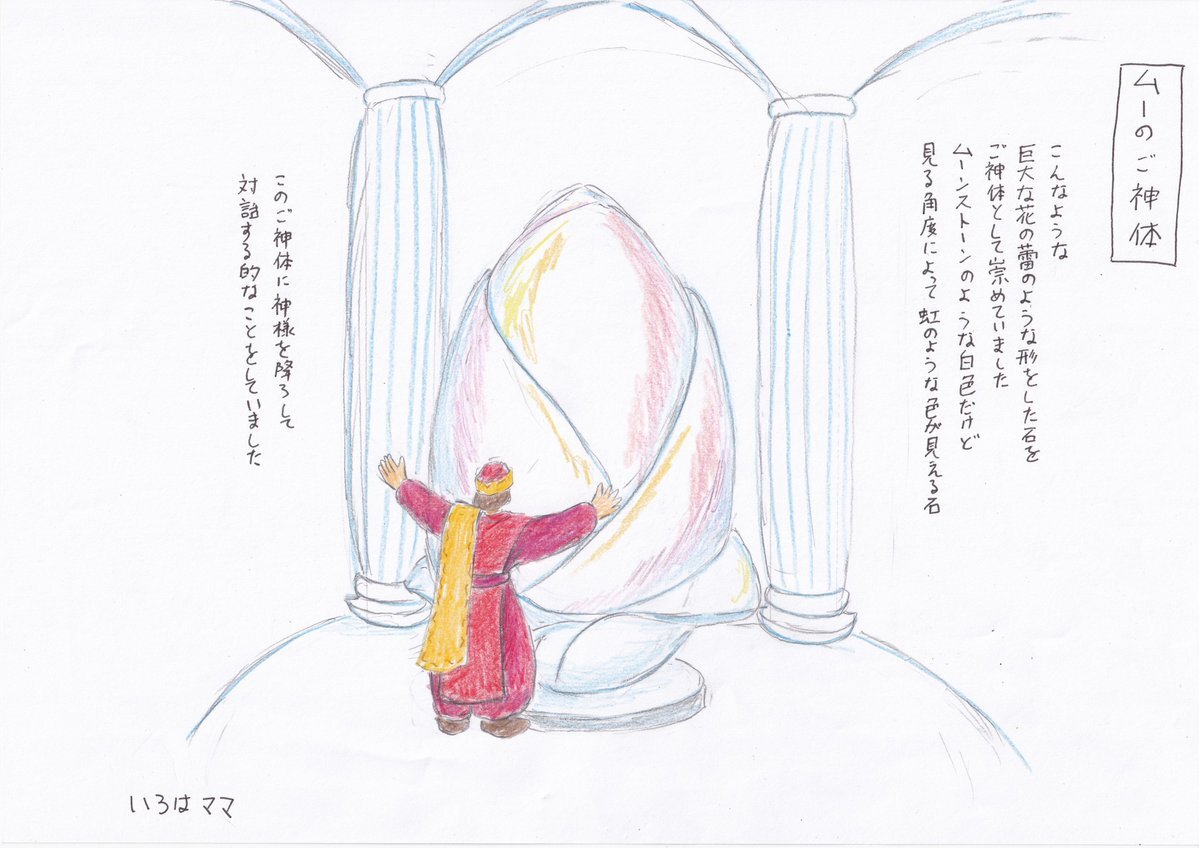 ムーのご神体
こんなような
巨大な花の蕾のような形をした石を
ご神体として崇めていました
ムーンストーンのような白色だけど
見る角度によって虹のような色が見える石
このご神体に神様を降ろして
対話する的なことをしていました
いろはママ